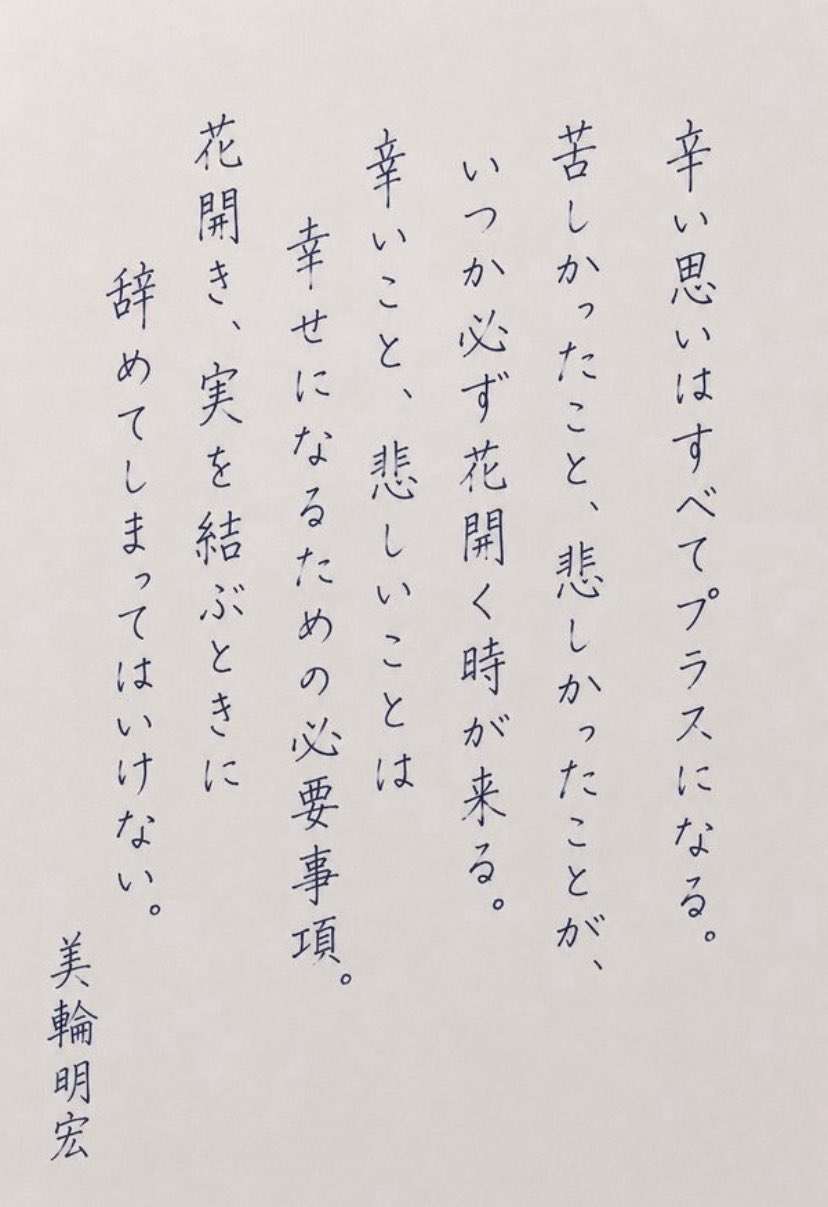 辛い思いはすべてプラスになる。
苦しかったこと、悲しかったことが、
いつか必ず花開く時が来る。
辛いこと、悲しいことは
幸せになるための必要事項。
花開き、実を結ぶときに
辞めてしまってはいけない。
美輪明宏